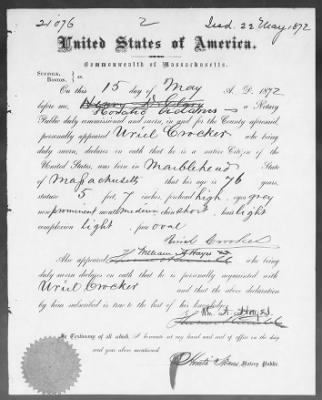 21076 2 Issd. 22 May 1872
United States of America.
Commonwealth of Massachusetts.
SUFFOLK,
BOSTON, SS. On this 15 day of May A. D. 1872
before me, Horatio a Notary
Public duly commissioned and sworn, in and for the County aforesaid,
personally appeared Uriel Crocker who being
duly sworn, declares on oath that he is a native Citizen of the
United States, was born in Marblehead State
of Massachusetts that his age is 76 years,
stature 5 feet, 7 inches, forehead high, eyes grey
nose prominent mouth medium chin short, hair light
complexion light, face oval
Uriel Crocker
William A. Hayes
Also appeared who being
duly sworn declares on oath that he is personally acquainted with
Uriel Crocker and that the above declaration
by him subscribed is true to the best of his knowledge
Wm. A. Hayes.
In Testimony of all which I hereunto set my hand and seal of office in the day
and year above mentioned.
Notary Public.